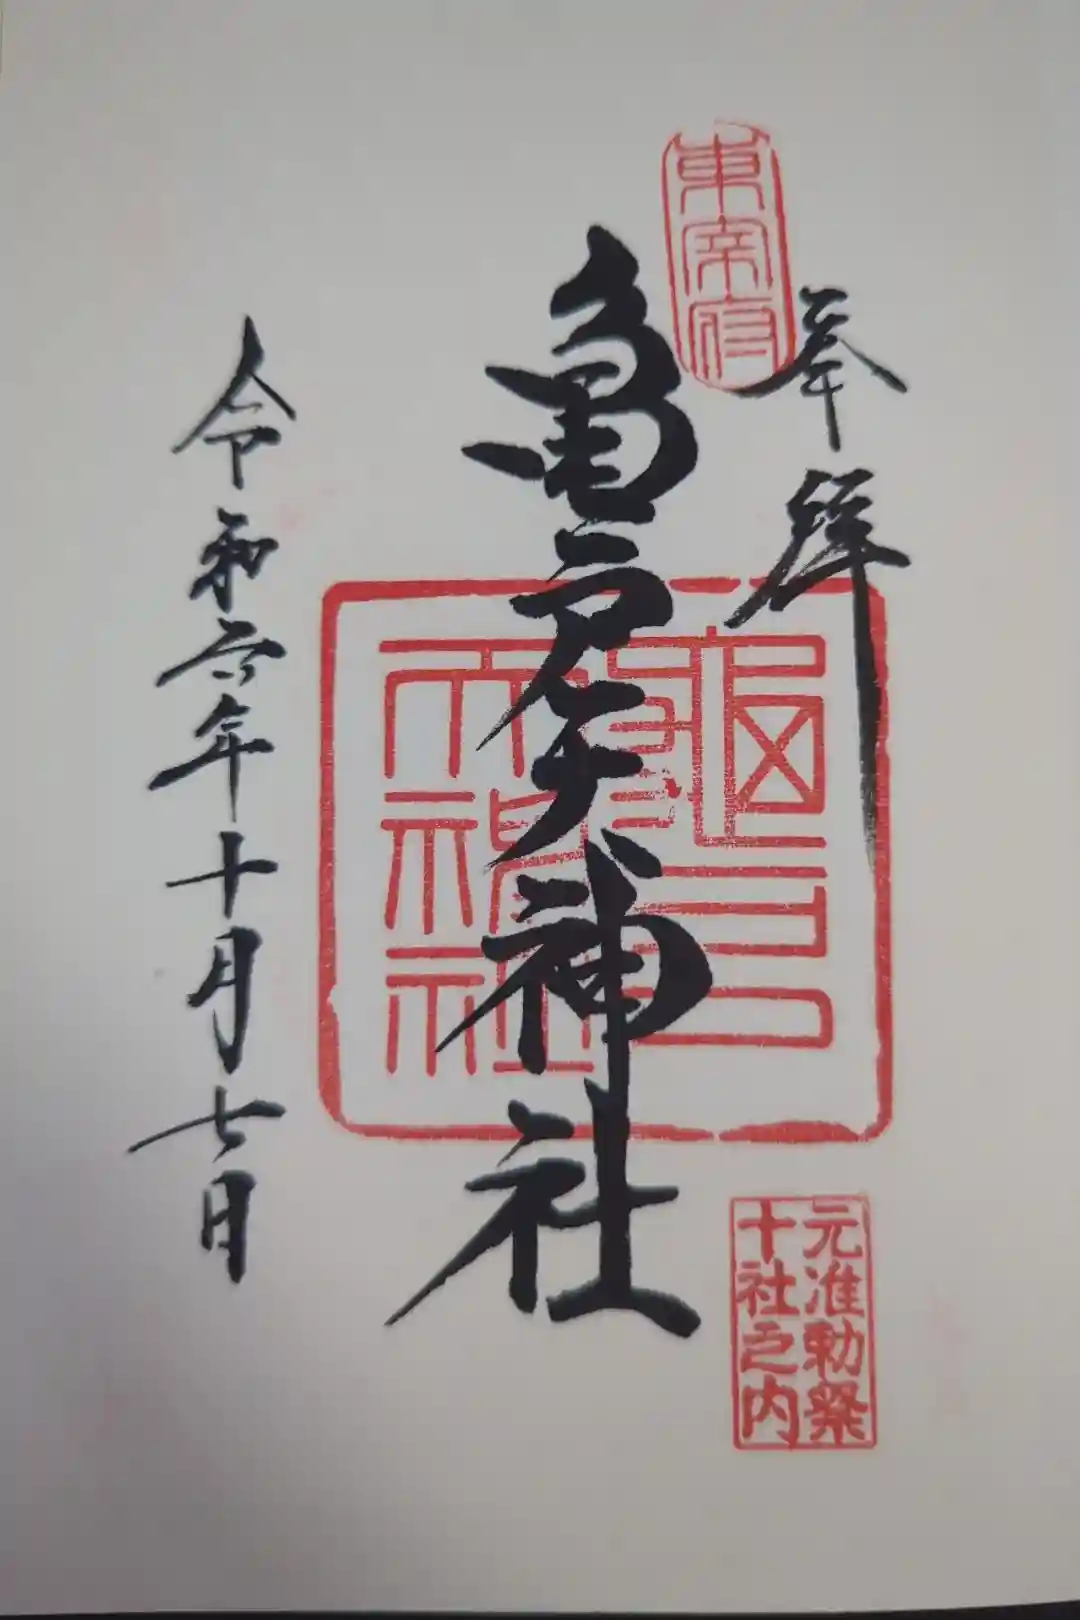 東宰府
奉拝
亀戸天神社
龜戸天神社
元准勅祭
十社之内
令和六年十月七日